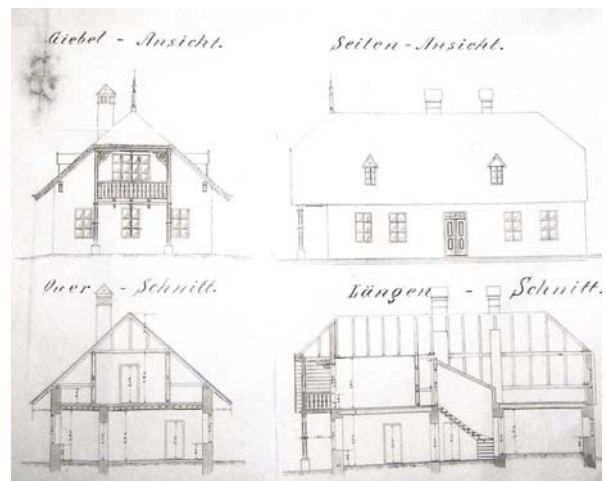 Giebel - Ansicht.
Seiten - Ansicht.
Quer - Schnitt.
Längen - Schnitt.